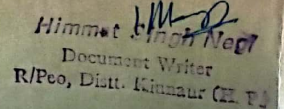 Himmat Singh Negi
Document Writer
R/Peo, Distt. Kinnaur (H. P.)